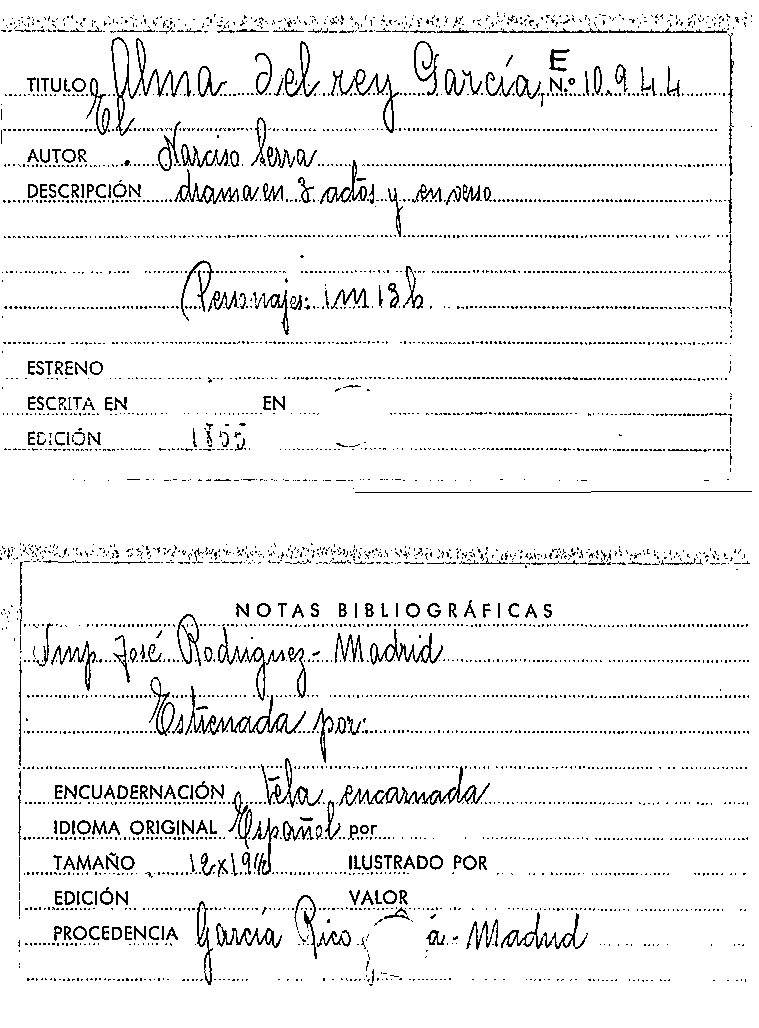 TITULO El Alma del rey García, E N.º 10.944
AUTOR . Narciso Serra
DESCRIPCIÓN drama en 3 actos y en verso
Personajes: 1 m 13 h.
ESTRENO
ESCRITA EN EN
EDICIÓN 1855
NOTAS BIBLIOGRÁFICAS
Imp. José Rodriguez - Madrid
Estrenada por:
ENCUADERNACIÓN tela encarnada
IDIOMA ORIGINAL Español por
TAMAÑO ILUSTRADO POR
EDICIÓN VALOR
PROCEDENCIA García Rico á - Madrid